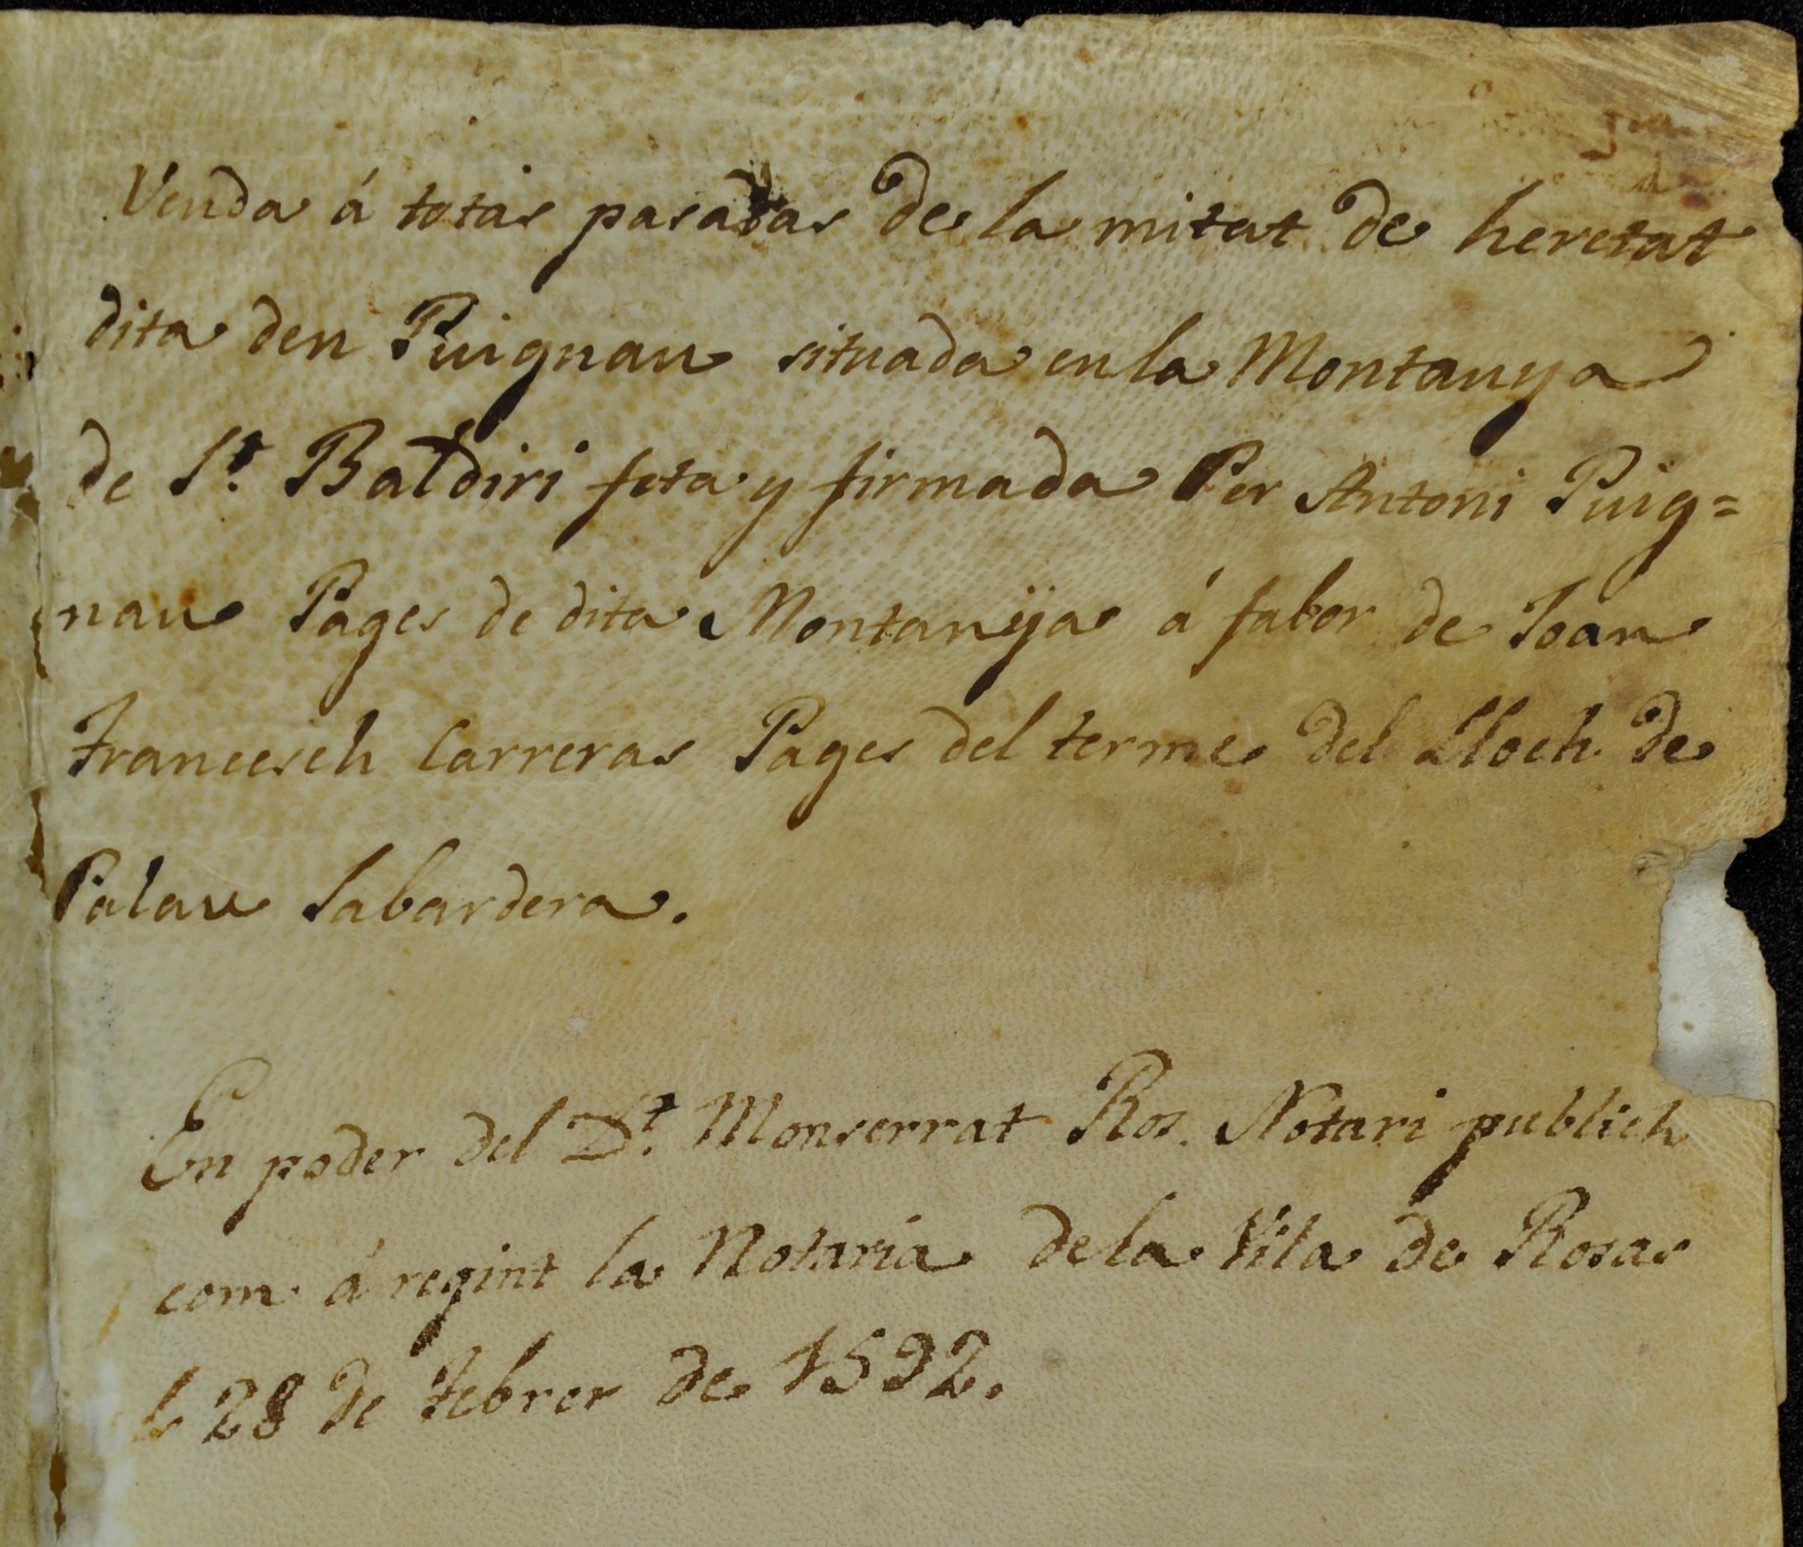 Venda á totas pasadas de la mitat de heretat
dita den Puignau situada en la Montanya
de St. Baldiri feta y firmada Per Antoni Puig=
nau Pages de dita Montanÿa á fabor de Joan
Francesch Carreras Pages del terme del Lloch de
Palau Sabardera.
En poder del Dt. Monserrat Ros. Notari publich
com á regint la Notaria de la Vila de Rosas
28 de Febrer de 1592.